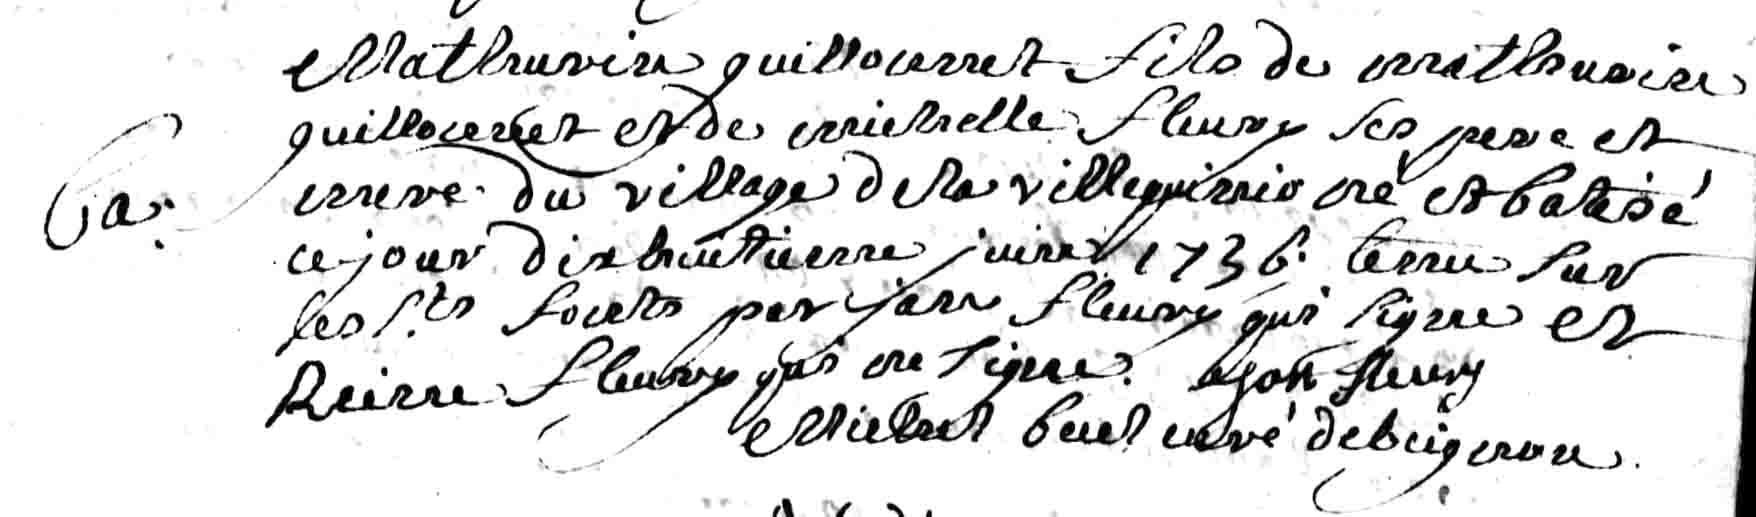 Mathurin guillouemet fils de mathurin
guillouemet et de michelle fleury ses pere et
Ba. mere du village de la ville guimio né et batisé
ce jour dixhuitieme juin 1736. tenu sur
les s.ts fonts par jan fleury qui signe et
Reine fleury qui ne signe. Jan fleury
Michel buel curé de